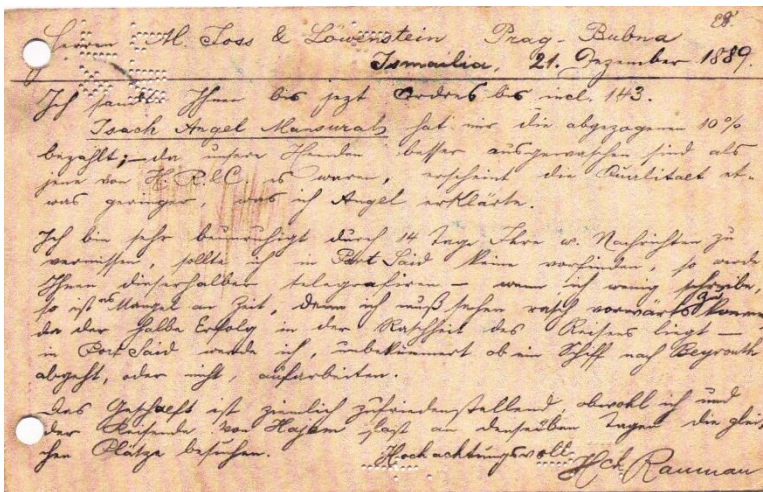 Herren M. Joss & Löwenstein Prag-Bubna
Ismailia, 21. Dezember 1889.
Ich sandte Ihnen bis jezt Ordres bis incl. 143.
Isach Angel Mansurah hat mir die abgezogenen 10%
bezahlt; – da unsere Hemden besser ausgewaschen sind als
jene von H. R. & C es waren, erscheint die Qualitaet et-
was geringer, was ich Angel erklärte.
Ich bin sehr beunruhigt durch 14 Tage Ihre w. Nachrichten zu
vermissen, sollte ich in Port Said keine vorfinden, so werde
Ihnen dieserhalber telegrafiren – wenn ich wenig schreibe,
so ist es Mangel an Zeit, denn ich muß sehen rasch vorwärts zu kommen
da der halbe Erfolg in der Raschheit des Reisens liegt –
in Port Said werde ich, unbekümmert ob ein Schiff nach Beyrouth
abgeht, oder nicht, aufarbeiten.
Das Geschaeft ist ziemlich zufriedenstellend, obwohl ich und
der Reisende von Hajam fast an denselben Tagen die glei-
chen Plätze besuchen.
Hochachtungsvoll